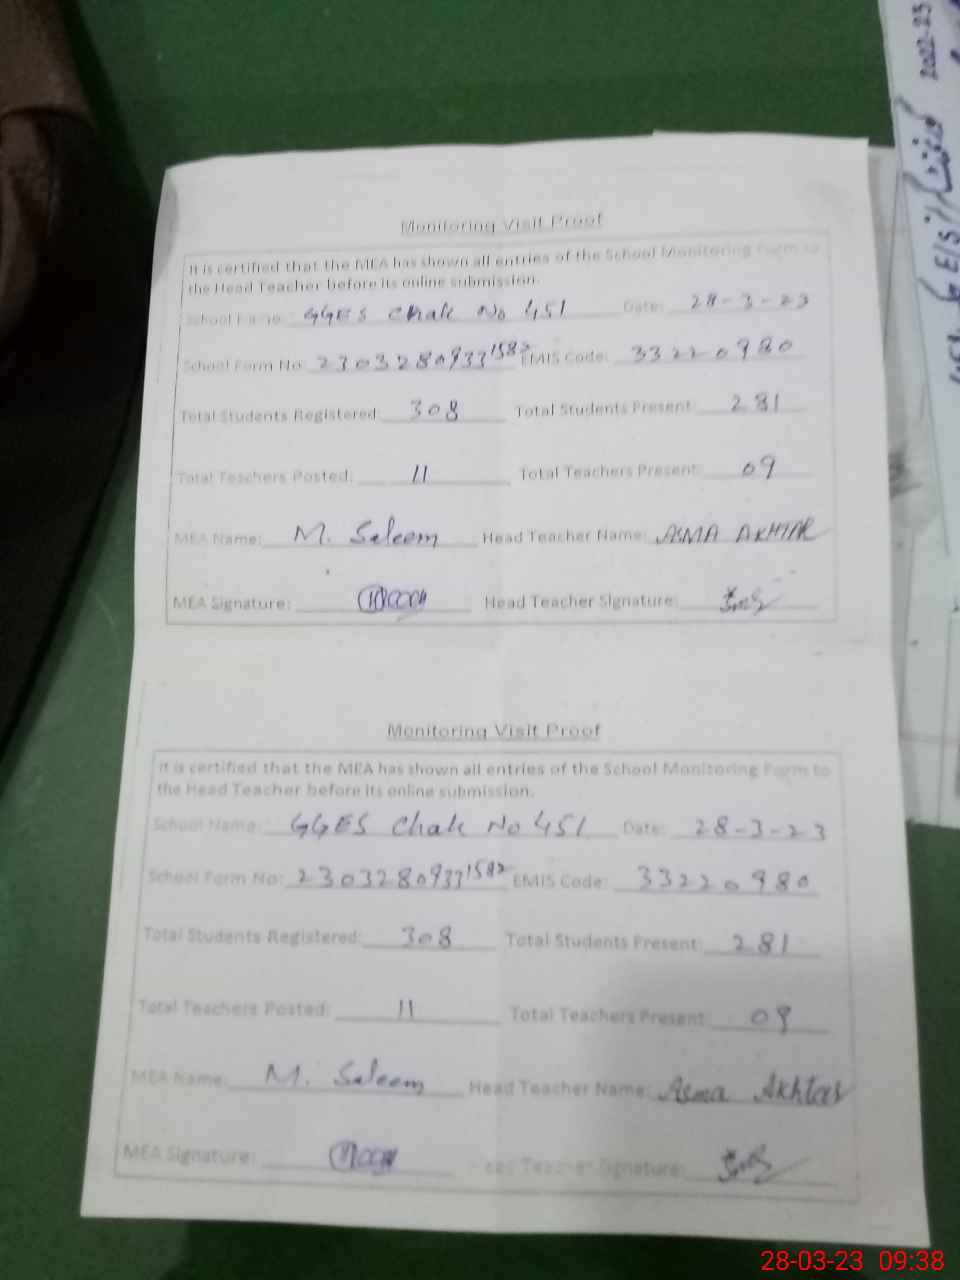 2022-23
Monitoring Visit Proof
It is certified that the MEA has shown all entries of the School Monitoring Form to
the Head Teacher before its online submission.
School Name: GGES Chak No 451 Date: 28-3-23
School Form No: 2303280933 1582 EMIS Code: 33220980
Total Students Registered: 308 Total Students Present: 281
Total Teachers Posted: 11 Total Teachers Present: 09
MEA Name: M. Saleem Head Teacher Name: ASMA AKHTAR
MEA Signature: Head Teacher Signature:
Monitoring Visit Proof
It is certified that the MEA has shown all entries of the School Monitoring Form to
the Head Teacher before its online submission.
School Name: GGES Chak No 451 Date: 28-3-23
School Form No: 2303280933 1582 EMIS Code: 33220980
Total Students Registered: 308 Total Students Present: 281
Total Teachers Posted: 11 Total Teachers Present: 09
MEA Name: M. Saleem Head Teacher Name: Asma Akhtar
MEA Signature: Head Teacher Signature:
28-03-23 09:38